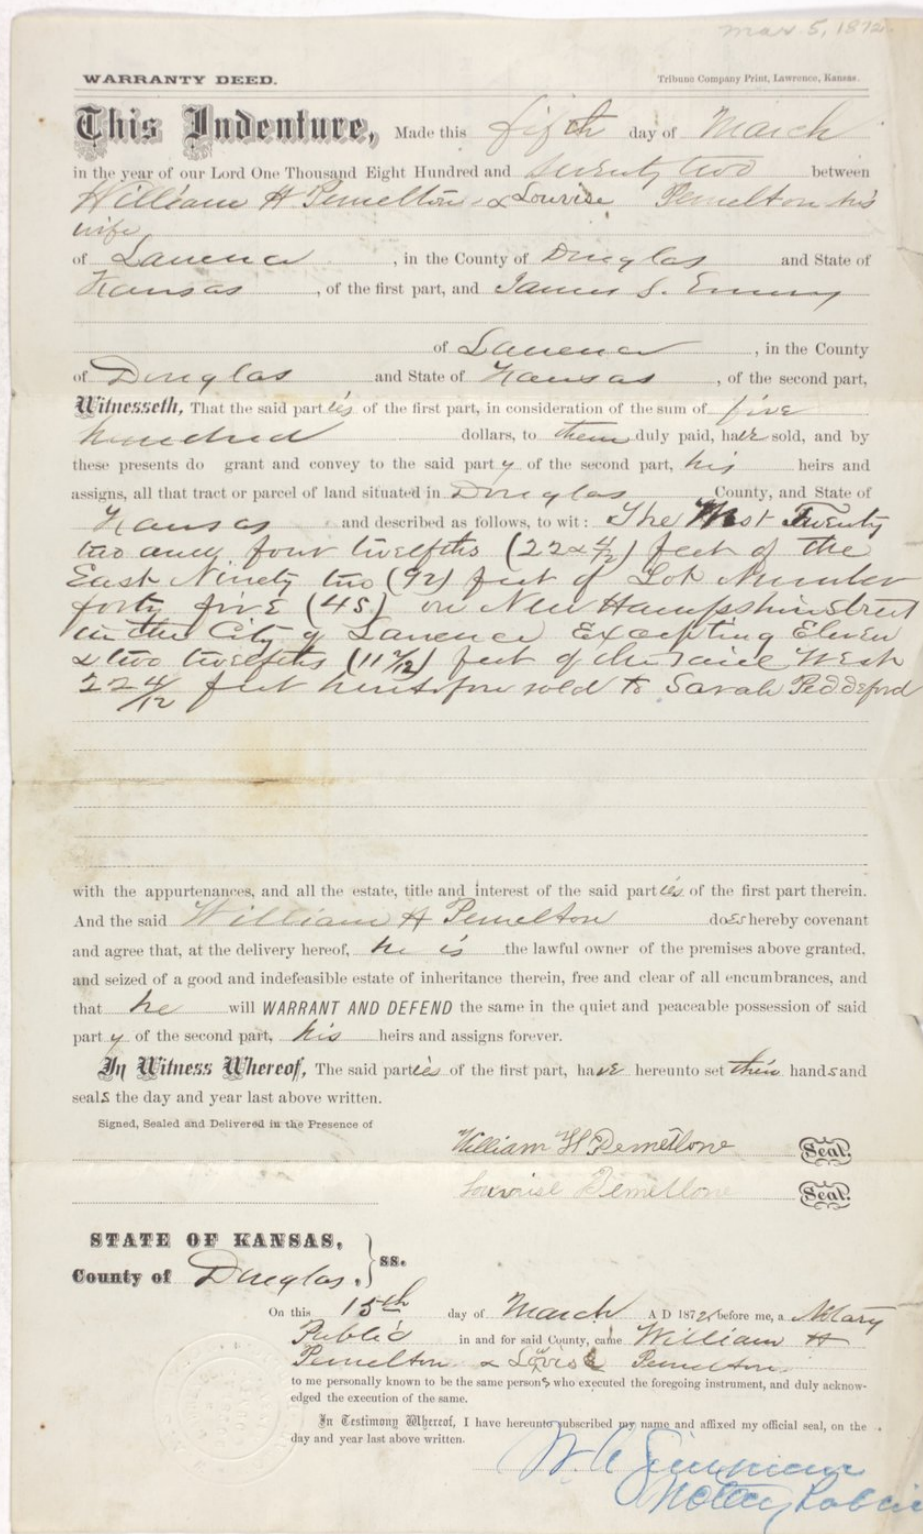 Mar 5, 1872
WARRANTY DEED. Tribune Company Print, Lawrence, Kansas.
This Indenture, Made this fifth day of March
in the year of our Lord One Thousand Eight Hundred and seventy two between
William H Pemelton & Lourise Pemelton his
wife
of Lawrence, in the County of Douglas and State of
Kansas, of the first part, and James S. Emery
of Lawrence, in the County
of Douglas and State of Kansas, of the second part,
Witnesseth, That the said parties of the first part, in consideration of the sum of five
hundred dollars, to them duly paid, have sold, and by
these presents do grant and convey to the said party of the second part, his heirs and
assigns, all that tract or parcel of land situated in Douglas County, and State of
Kansas and described as follows, to wit: The West Twenty
two and four twelfths (22 & 4/12) feet of the
East Ninety two (92) feet of Lot Number
forty five (45) on New Hampshire Street
in the City of Lawrence Excepting Eleven
& two twelfths (11 2/12) feet of the said West
22 4/12 feet heretofore sold to Sarah Peddeford
with the appurtenances, and all the estate, title and interest of the said parties of the first part therein.
And the said William H Pemelton does hereby covenant
and agree that, at the delivery hereof, he is the lawful owner of the premises above granted,
and seized of a good and indefeasible estate of inheritance therein, free and clear of all encumbrances, and
that he will WARRANT AND DEFEND the same in the quiet and peaceable possession of said
party of the second part, his heirs and assigns forever.
In Witness Whereof, The said parties of the first part, have hereunto set their hands and
seals the day and year last above written.
Signed, Sealed and Delivered in the Presence of
William H Pemetlone Seal.
Lourise Pemetlone Seal.
STATE OF KANSAS,
County of Douglas, } ss.
On this 15th day of March A D 1872 before me, a Notary
Public in and for said County, came William H
Pemelton & Lovise Pemelton
to me personally known to be the same persons who executed the foregoing instrument, and duly acknow-
edged the execution of the same.
In Testimony Whereof, I have hereunto subscribed my name and affixed my official seal, on the
day and year last above written.
Notary Public